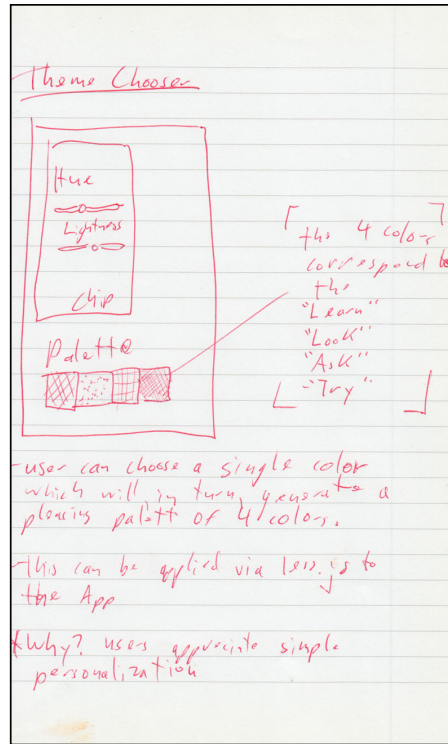 Theme Chooser
Hue
Lightness
Chip
Palette
the 4 colors
correspond to
the
"Learn"
"Look"
"Ask"
"Try"
- user can choose a single color
which will, in turn, generate a
pleasing palett of 4 colors.
- this can be applied via less.js to
the App
* Why? users appreciate simple
personalization